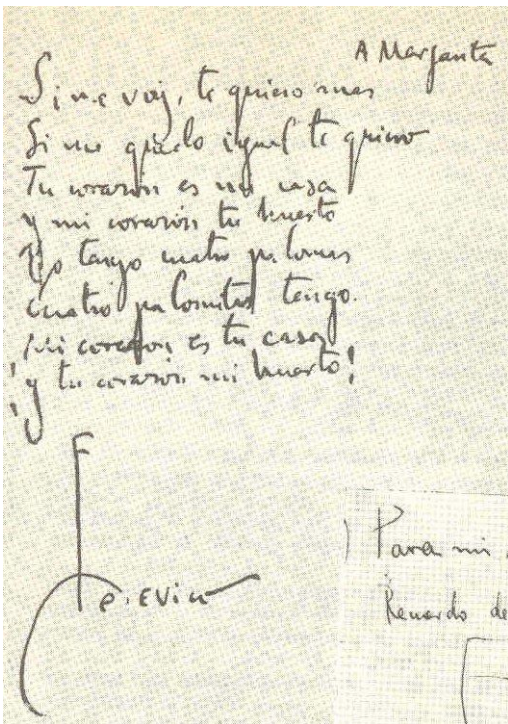 A Margarita
Si me voy, te quiero mas
Si me quedo igual te quiero
Tu corazón es mi casa
y mi corazón tu huerto
Yo tengo cuatro palomas
cuatro palomitas tengo.
Mi corazon es tu casa
¡y tu corazón mi huerto!
Para mi
Recuerdo de